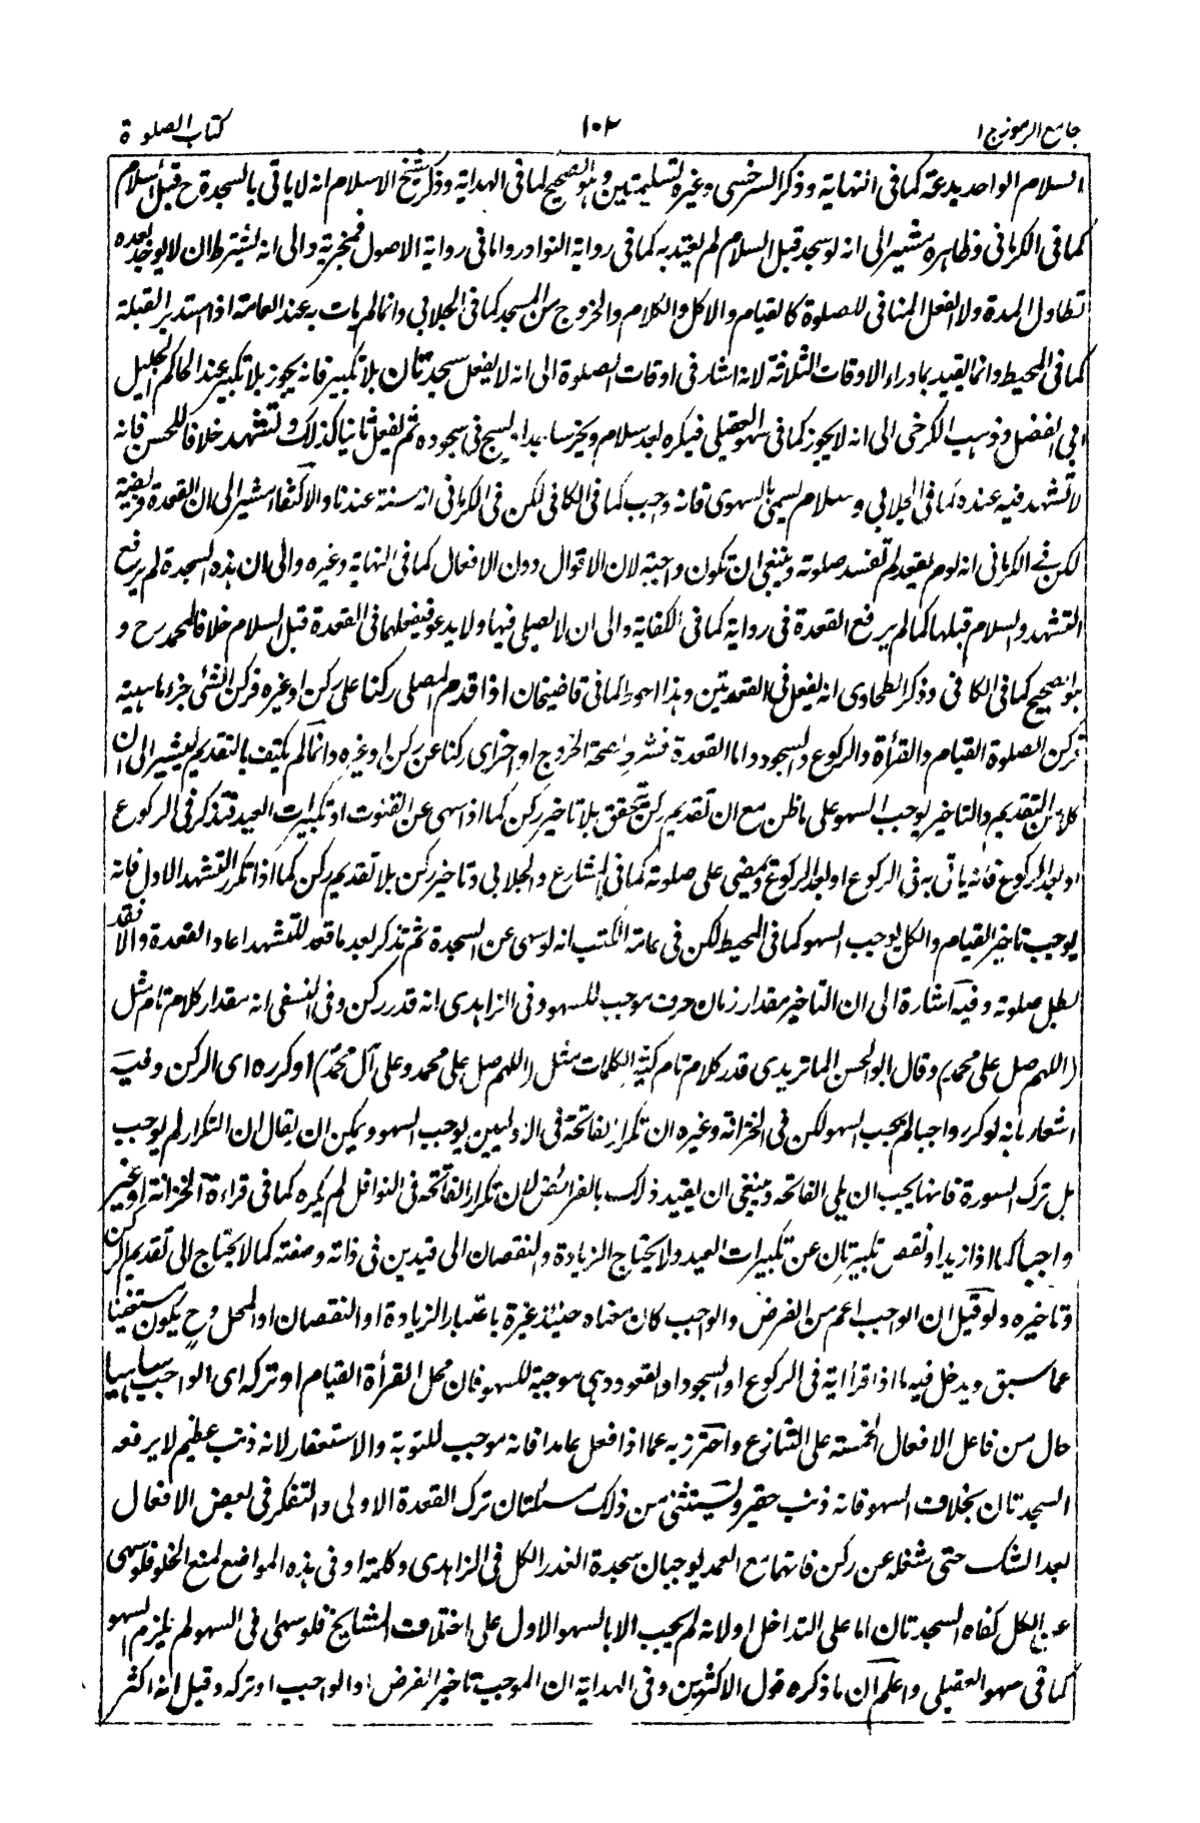 جامع الرموز ج ١
١٠٢
كتاب الصلوة
السلام الواحد بدعة كما فى النهاية وذكر السرخسى وغيره تسليمتين وهو الصحيح كما فى الهداية وذكر شيخ الاسلام انه لا ياتى بالسجدة ح قبل السلام
كما فى الكرمانى وظاهره مشير الى انه لو سجد قبل السلام لم يعتد به كما فى رواية النوادر واما فى رواية الاصول فمجزية والى انه يشترط ان لا يوجد بعده
تطاول المدة ولا الفعل المنافى للصلوة كالقيام والاكل والكلام والخروج من المسجد كما فى الجلابى وانما لم يات به عند العامة اذا استدبر القبلة
كما فى المحيط وانما لقيد بما وراء الاوقات الثلاثة لانه اشار فى اوقات الصلوة الى انه لا يفعل سجدتان بلا تكبير فانه يجوز بلا تكبير عند الحاكم الجليل
ابى الفضل وذهب الكرخى الى انه لا يجوز كما فى سهو العقيلى فيكره بعد سلام ويخر ساجدا يسبح فى سجوده ثم يفعل ثانيا كذلك وتشهد خلافا للحسن فانه
لا تشهد فيه عنده كما فى الجلابى وسلام يسمى بالسهوى فانه وجب كما فى الكافى لكن فى الكرمانى انه سنة عندنا والاكتفاء مشير الى ان القعدة فريضة
لكن فى الكرمانى انه لو لم يقعد لم تفسد صلوته وينبغى ان تكون واجبة لان الاقوال دون الافعال كما فى النهاية وغيره والى ان هذه السجدة لم يرفع
التشهد والسلام قبلها كما لم يرفع القعدة فى رواية كما فى الكفاية والى ان لا يصلى فيها ولا يدعو فيفعلهما فى القعدة قبل السلام خلافا لمحمد رح و
هو الصحيح كما فى الكافى وذكر الطحاوى انه يفعل فى القعدتين وهذا احوط كما فى قاضيخان اذا قدم المصلى ركنا على ركن او غيره فركن الشئ جزء ماهيته
فركن الصلوة القيام والقرأة والركوع والسجود واما القعدة فشرط صحة الخروج او اخر اى ركنا عن ركن او غيره وانما لم يكتف بالتقديم ليشير الى ان
كلا من التقديم والتاخير يوجب السهو على ما ظن مع ان تقديم ركن يتحقق بلا تاخير ركن كما اذا سهى عن القنوت او تكبيرات العيد فتذكر فى الركوع
او بعد الركوع فانه ياتى به فى الركوع او بعد الركوع ويمضى على صلوته كما فى المشارع والجلابى وتاخير ركن بلا تقديم ركن كما اذا تكرر التشهد الاول فانه
يوجب تاخير القيام والكل يوجب السهو كما فى المحيط لكن فى عامة الكتب انه لو سهى عن السجدة ثم تذكر بعد ما قعد للتشهد اعاد القعدة والا فقد
بطل صلوته وفيه اشارة الى ان التاخير مقدار زمان حرف موجب للسهو وفى الزاهدى انه قدر ركن وفى النسفى انه مقدار كلام تام مثل
(اللهم صل على محمد) وقال ابو الحسن الماتريدى قدر كلام تام كثير الكلمات مثل (اللهم صل على محمد وعلى آل محمد) او كرره اى الركن وفيه
اشعار بانه لو كرر واجبا لم يجب السهو لكن فى الخزانة وغيره ان تكرار الفاتحة فى الاوليين يوجب السهو ويمكن ان يقال ان التكرار لم يوجب
بل ترك السورة فانها يجب ان يلى الفاتحه وينبغى ان يقيد ذلك بالفرائض لان تكرار الفاتحه فى النوافل لم يكره كما فى قراءة الخزانة او غير
واجبا كما اذا زيد او نقص تكبيرتان عن تكبيرات العيد ولا يحتاج الزيادة والنقصان الى قيدين فى ذاته وصفته كما لا يحتاج الى تقديم الركن
وتاخيره ولو قيل ان الوجب اعم من الفرض والواجب كان معناه حينئذ غيره باعتبار الزيادة او النقصان او المحل وح يكون مستغنيا
عما سبق ويدخل فيه ما اذا قرأ اية فى الركوع او السجود او القعود وهى موجبة للسهو فان محل القرأة القيام او تركه اى الواجب ساهيا
حال من فاعل الافعال الخمسة على التنازع واحترز به عما اذا فعل عامدا فانه موجب للتوبة والاستغفار لانه ذنب عظيم لا يرفعه
السجدتان بخلاف السهو فانه ذنب حقير ويستثنى من ذلك مسئلتان ترك القعدة الاولى والتفكر فى بعض الافعال
بعد الشك حتى شغله عن ركن فانهما مع العمد يوجبان سجدة العذر الكل فى الزاهدى وكلمة او فى هذه المواضع لمنع الخلو فلو سهى
عن الكل كفاه السجدتان اما على التداخل او لانه لم يجب الا بالسهو الاول على اختلاف المشايخ فلو سهى فى السهو لم يلزم السهو
كما فى سهو العقيلى واعلم ان ما ذكره قول الاكثرين وفى الهداية ان الموجب تاخير الفرض او الواجب او تركه وقيل انه اكثر